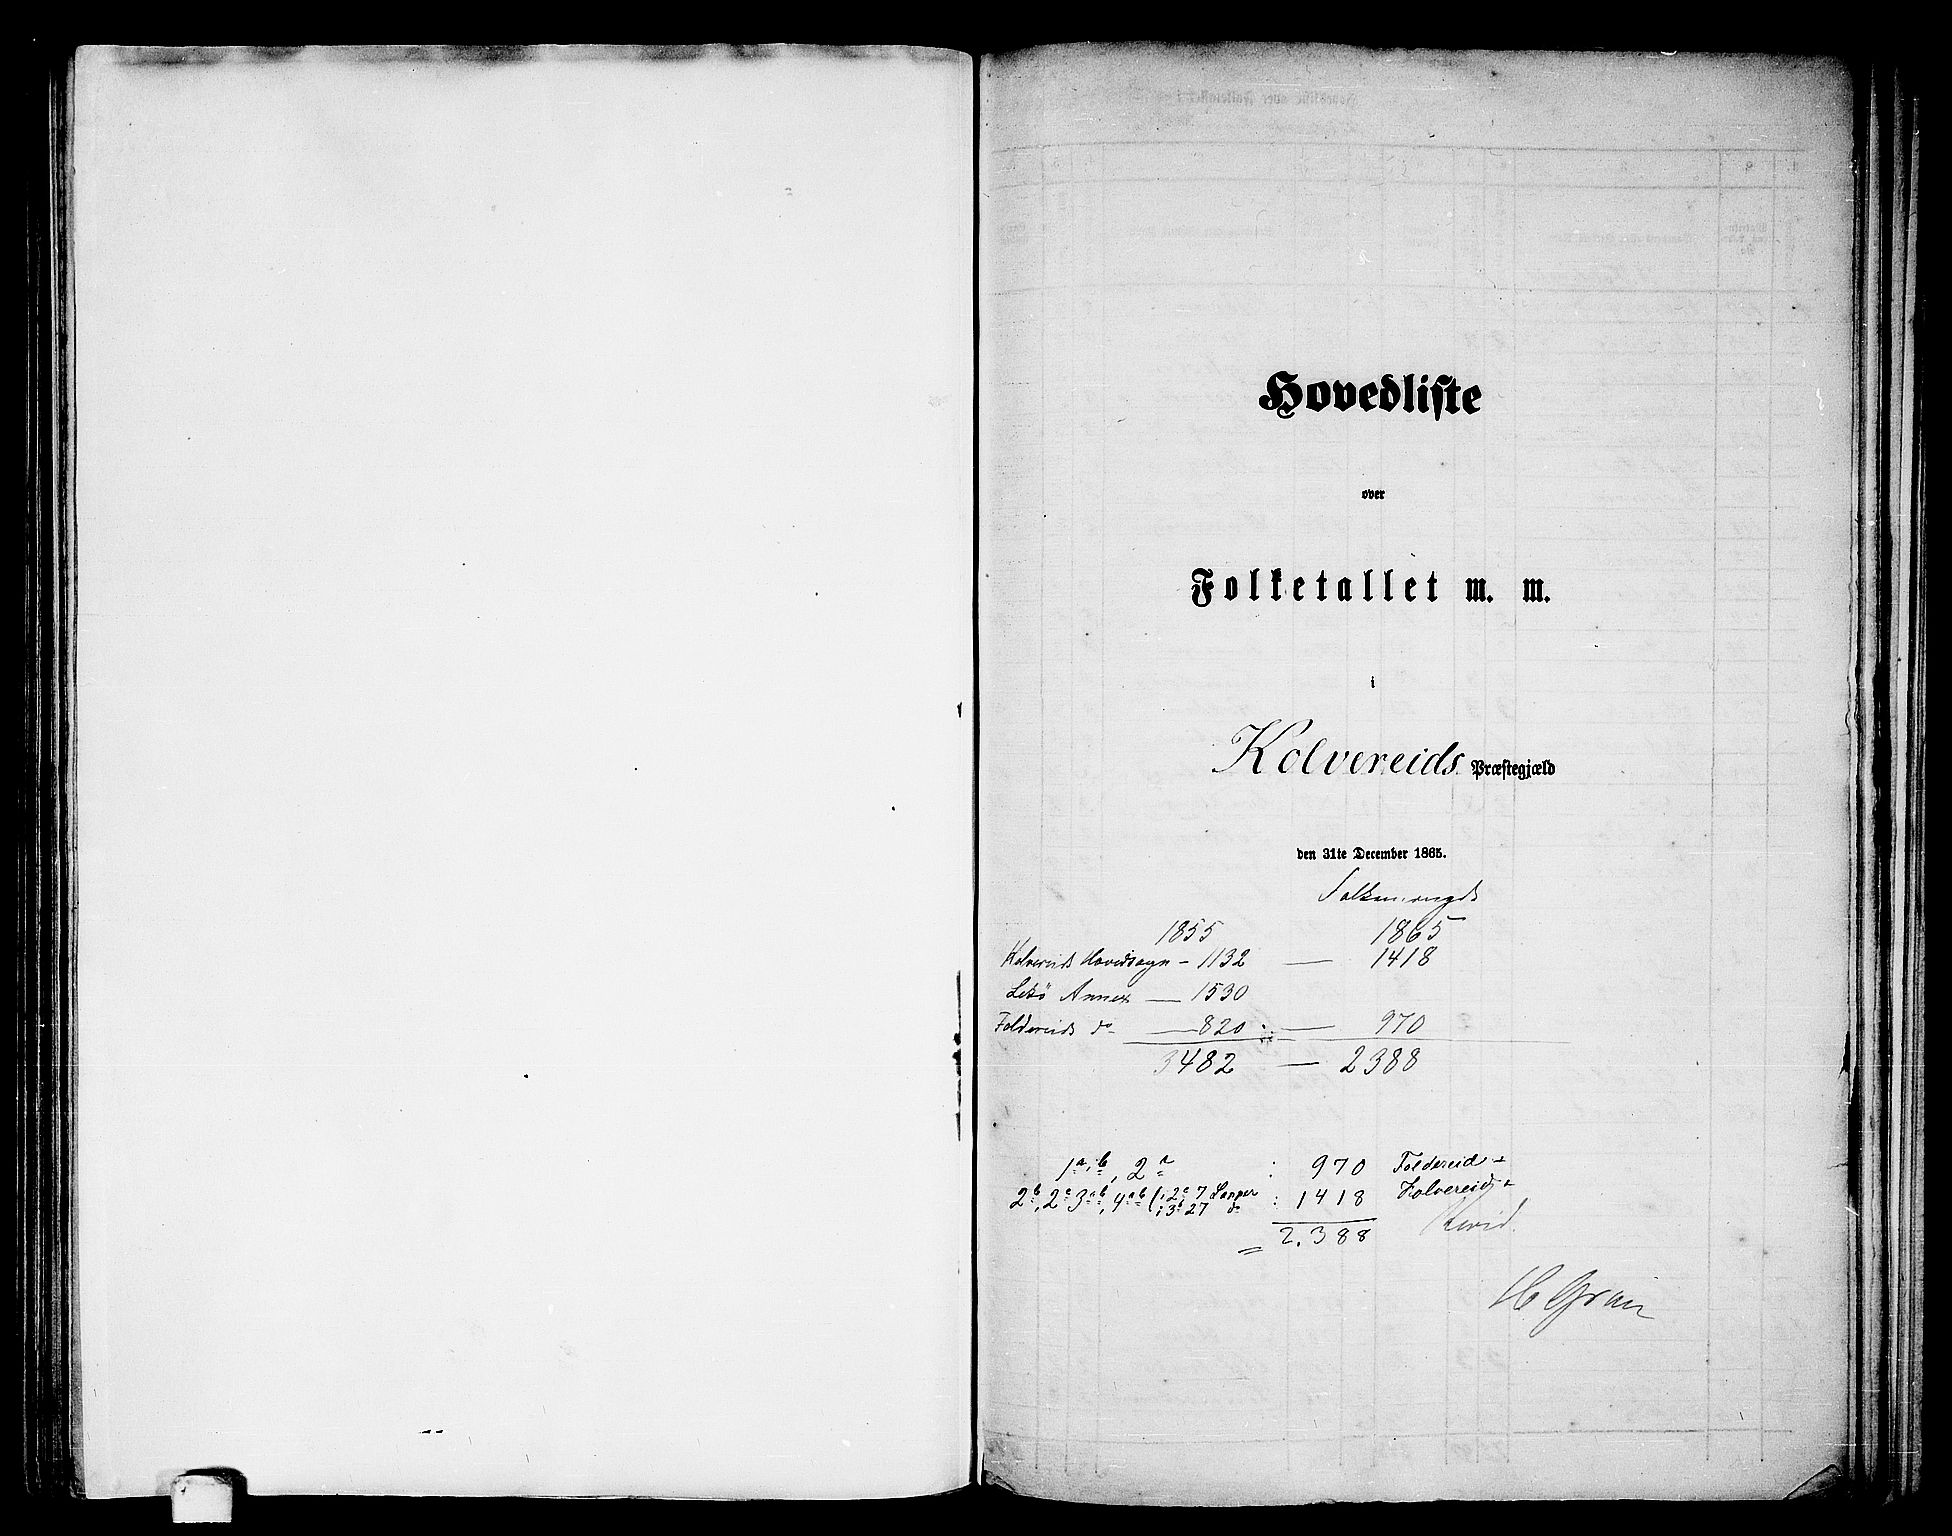 Hovedliste
over
Folketallet m. m.
i
Kolvereids Præstegjæld
den 31te December 1865.
Folkemængde
1855 1865
Kolvereids Hovedsogn - 1132 — 1418
Lekö Annex — 1530
Foldereids do — 820 — 970
3482 — 2388
1a, b, 2a : 970 Foldereids
2b, 2c 3ab, 4ab (; 2c 7 Lapper : 1418 Kolvereids
; 3b 27 do
= 2.388 Revid.
H Gran